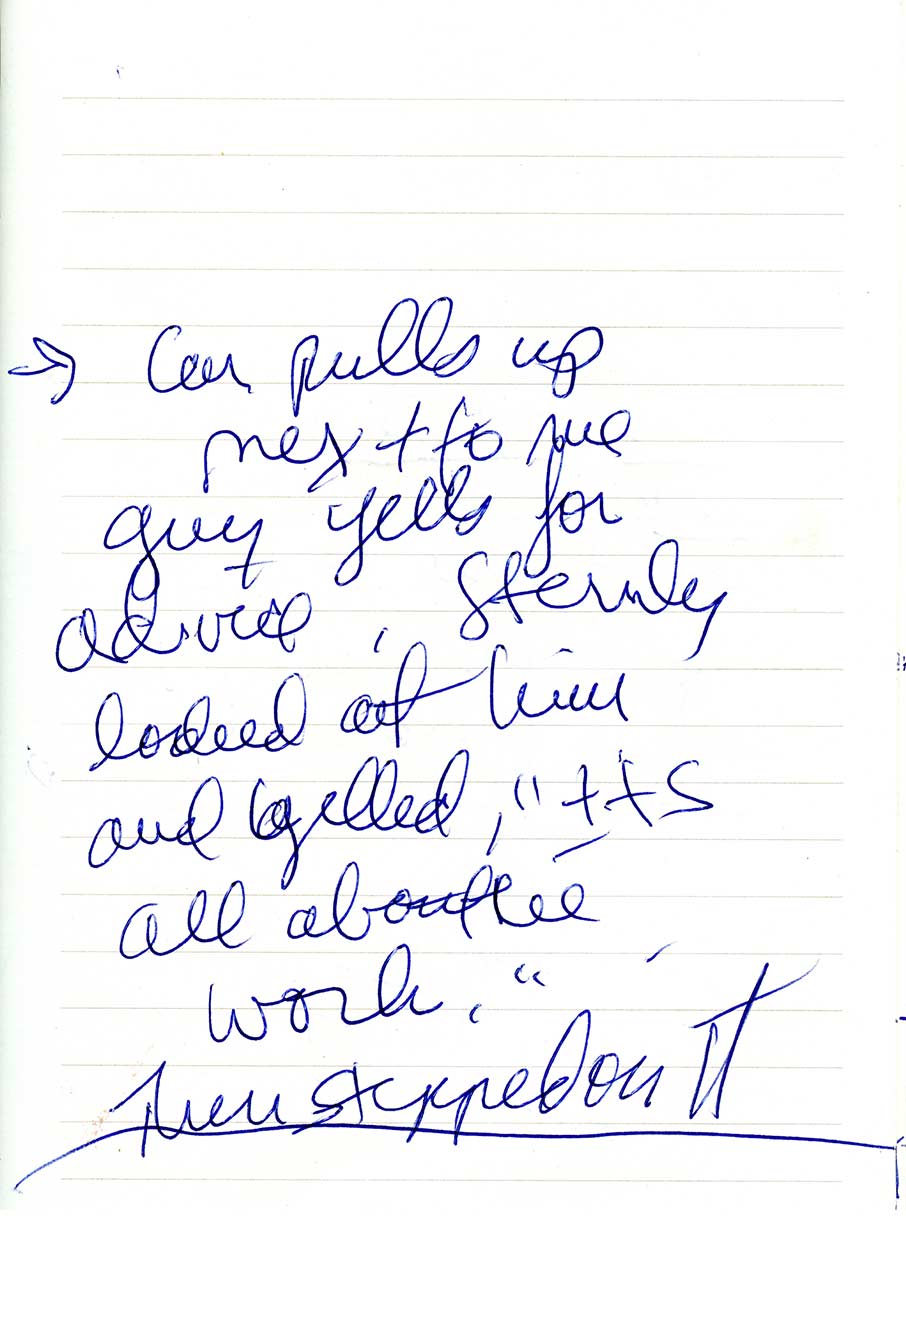 → Car pulls up
next to me
guy yells for
advice, Sternly
looked at him
and yelled, "It's
all about the
work."
Then stepped on IT